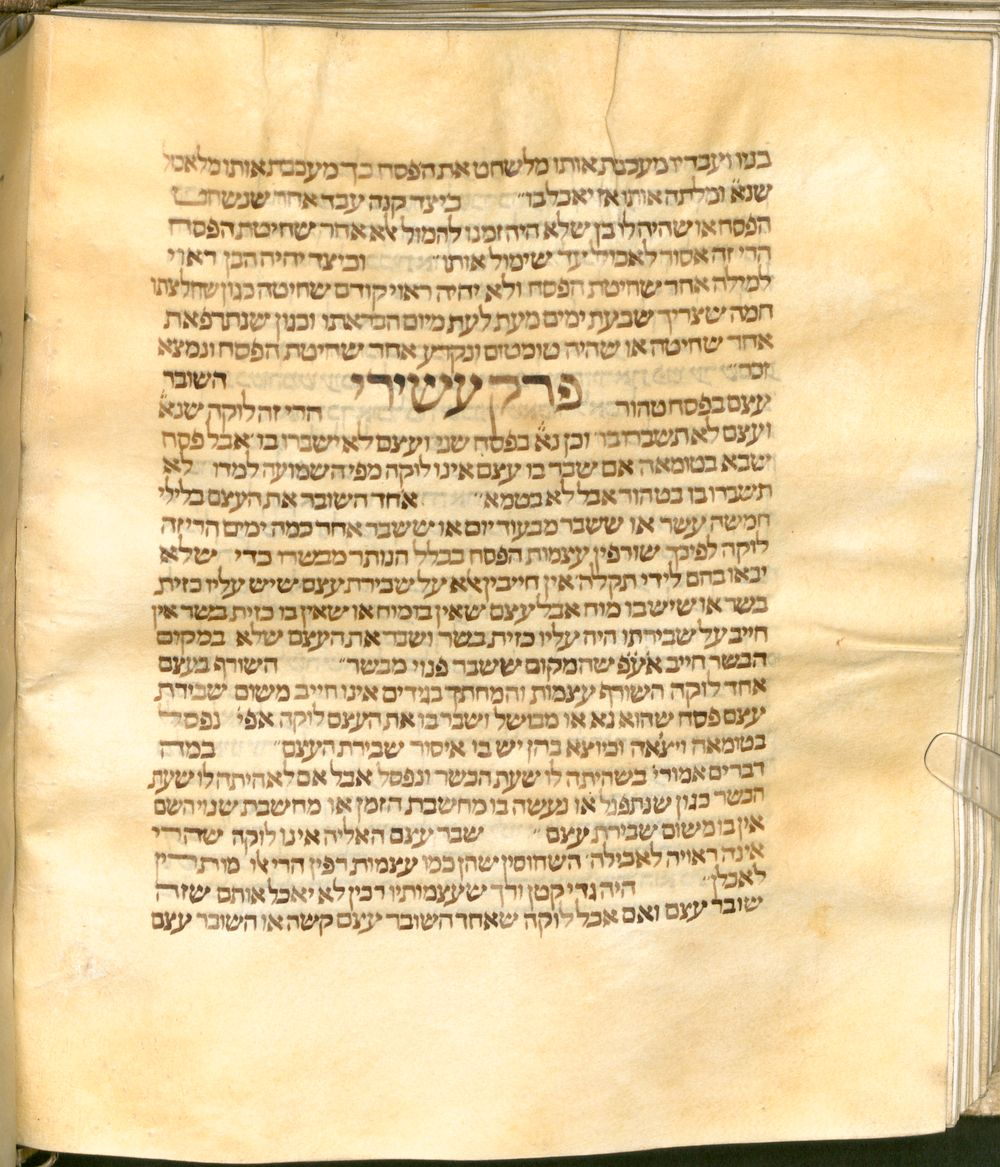 בניו ועבדיו מעכבת אותו מלשחט את הפסח כך מעכבת אותו מלאכל
שנא ומלתה אותו אז יאכל בו כיצד קנה עבד אחר שנשחט
הפסח או שהיה לו בן שלא היה זמנו להמול אלא אחר שחיטת הפסח
הרי זה אסור לאכול עד שימול אותו וכיצד יהיה הבן ראוי
למילה אחר שחיטת הפסח ולא יהיה ראוי קודם שחיטה כגון שחלצתו
חמה שצריך שבעת ימים מעת לעת מיום הבראתו וכגון שנתרפאת
אחר שחיטה או שהיה טומטום ונקרע אחר שחיטת הפסח ונמצא
זכר פרק עשירי השובר
עצם בפסח טהור הרי זה לוקה שנא
ועצם לא תשברו בו וכן נא בפסח שני ועצם לא ישברו בו אבל פסח
שבא בטומאה אם שבר בו עצם אינו לוקה מפי השמועה למדו לא
תשברו בו בטהור אבל לא בטמא אחד השובר את העצם בלילי
חמשה עשר או ששבר מבעוד יום או ששבר אחר כמה ימים הרי זה
לוקה לפיכך שורפין עצמות הפסח בכלל הנותר מבשרו כדי שלא
יבאו בהם לידי תקלה אין חייבין אלא על שבירת עצם שיש עליו כזית
בשר או שיש בו מוח אבל עצם שאין בו מוח או שאין בו כזית בשר אין
חייב על שבירתו היה עליו כזית בשר ושבר את העצם שלא במקום
הבשר חייב אעפ שהמקום ששבר פנוי מבשר השורף בעצם
אחד לוקה השורף עצמות והמחתך בגידים אינו חייב משום שבירת
עצם פסח שהוא נא או מבושל ושבר בו את העצם לוקה אפי נפסל
בטומאה ויצאה וכיוצא בהן יש בו איסור שבירת העצם במה
דברים אמורי בשהיתה לו שעת הכשר ונפסל אבל אם לא היתה לו שעת
הכשר כגון שנתפגל או נעשה בו מחשבת הזמן או מחשבת שנוי השם
אין בו משום שבירת עצם שבר עצם האליה אינו לוקה שהרי
אינה ראויה לאכילה השחוסין שהן כמו עצמות רפין הרי אלו מותרין
לאכלן היה גדי קטן ורך שעצמותיו רכין לא יאכל אותם שזה
שובר עצם ואם אכל לוקה שאחד השובר עצם קשה או השובר עצם